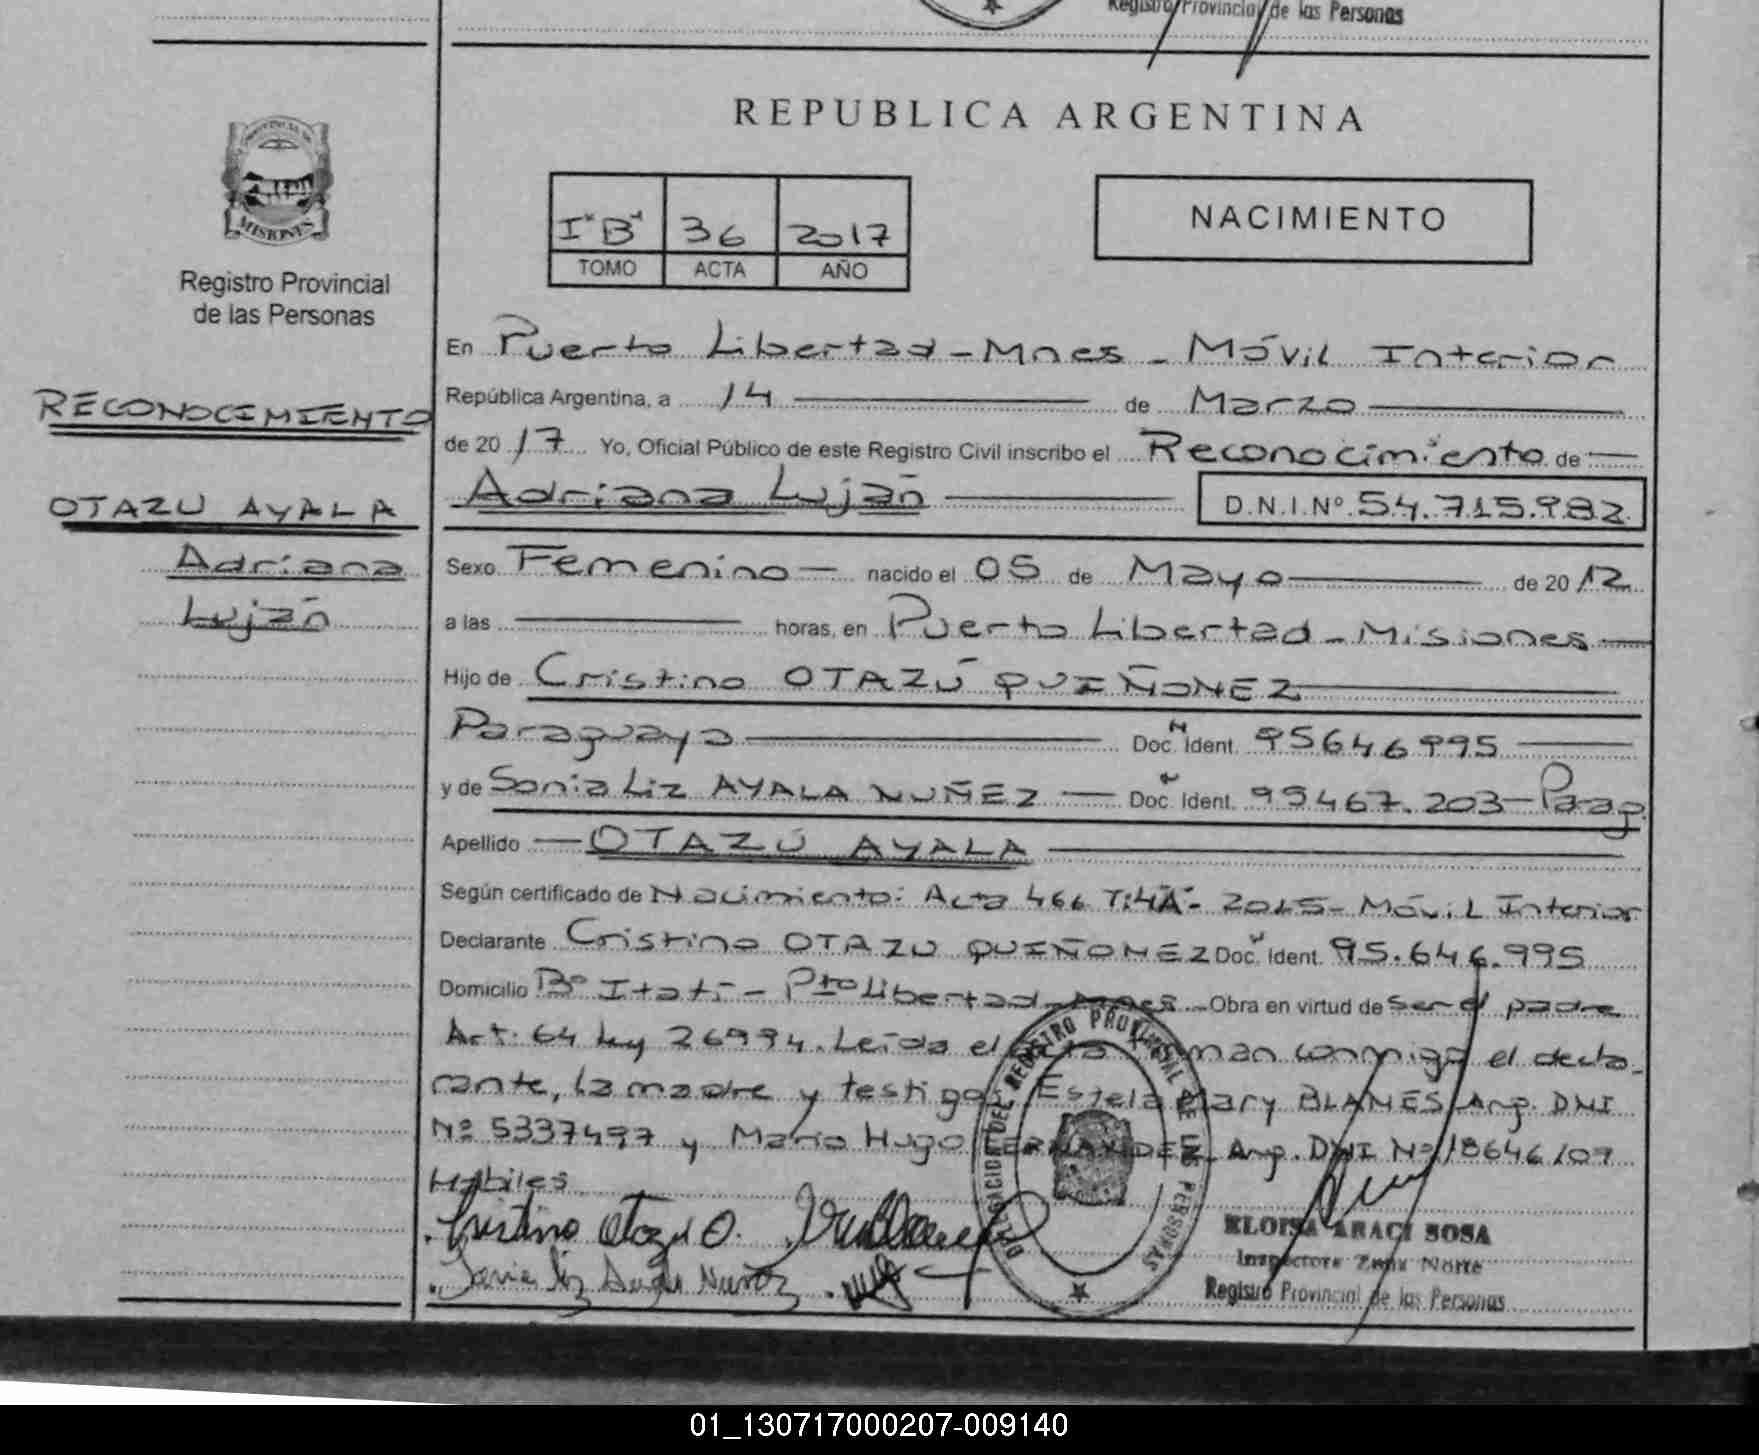 Registro Provincial de las Personas
REPUBLICA ARGENTINA
PROVINCIA DE
MISIONES
Registro Provincial
de las Personas
I"B" 36 2017
TOMO ACTA AÑO
NACIMIENTO
RECONOCIMIENTO
OTAZU AYALA
Adriana
Luján
En Puerto Libertad - Mnes - Móvil Interior
República Argentina, a 14 de Marzo
de 2017 Yo, Oficial Público de este Registro Civil inscribo el Reconocimiento de
Adriana Luján D.N.I.Nº 54.715.982
Sexo Femenino nacido el 05 de Mayo de 2012
a las horas, en Puerto Libertad - Misiones
Hijo de Cristino OTAZÚ QUIÑONEZ
Paraguayo Doc. Ident. 95646995
y de Sonia Liz AYALA NUÑEZ Doc. Ident. 95467.203 - Parag.
Apellido OTAZÚ AYALA
Según certificado de Nacimiento: Acta 466 T:4A - 2015 - Móvil Interior
Declarante Cristino OTAZU QUIÑONEZ Doc. Ident. 95.646.995
Domicilio Bº Itatí - Pto Libertad - Mnes - Obra en virtud de ser el padre
Art. 64 Ley 26994. Leída el Acta firman conmigo el decla-
rante, la madre y testigos Estela Mary BLANES Arg. DNI
Nº 5337497 y Mario Hugo FERNANDEZ Arg. DNI Nº 18646109
Hábiles
Cristino Otazu Q.
Sonia Liz Ayala Nuñez
DELEGACION DEL REGISTRO PROVINCIAL DE LAS PERSONAS
ELOISA ARACI SOSA
Inspectora Zona Norte
Registro Provincial de las Personas
01_130717000207-009140